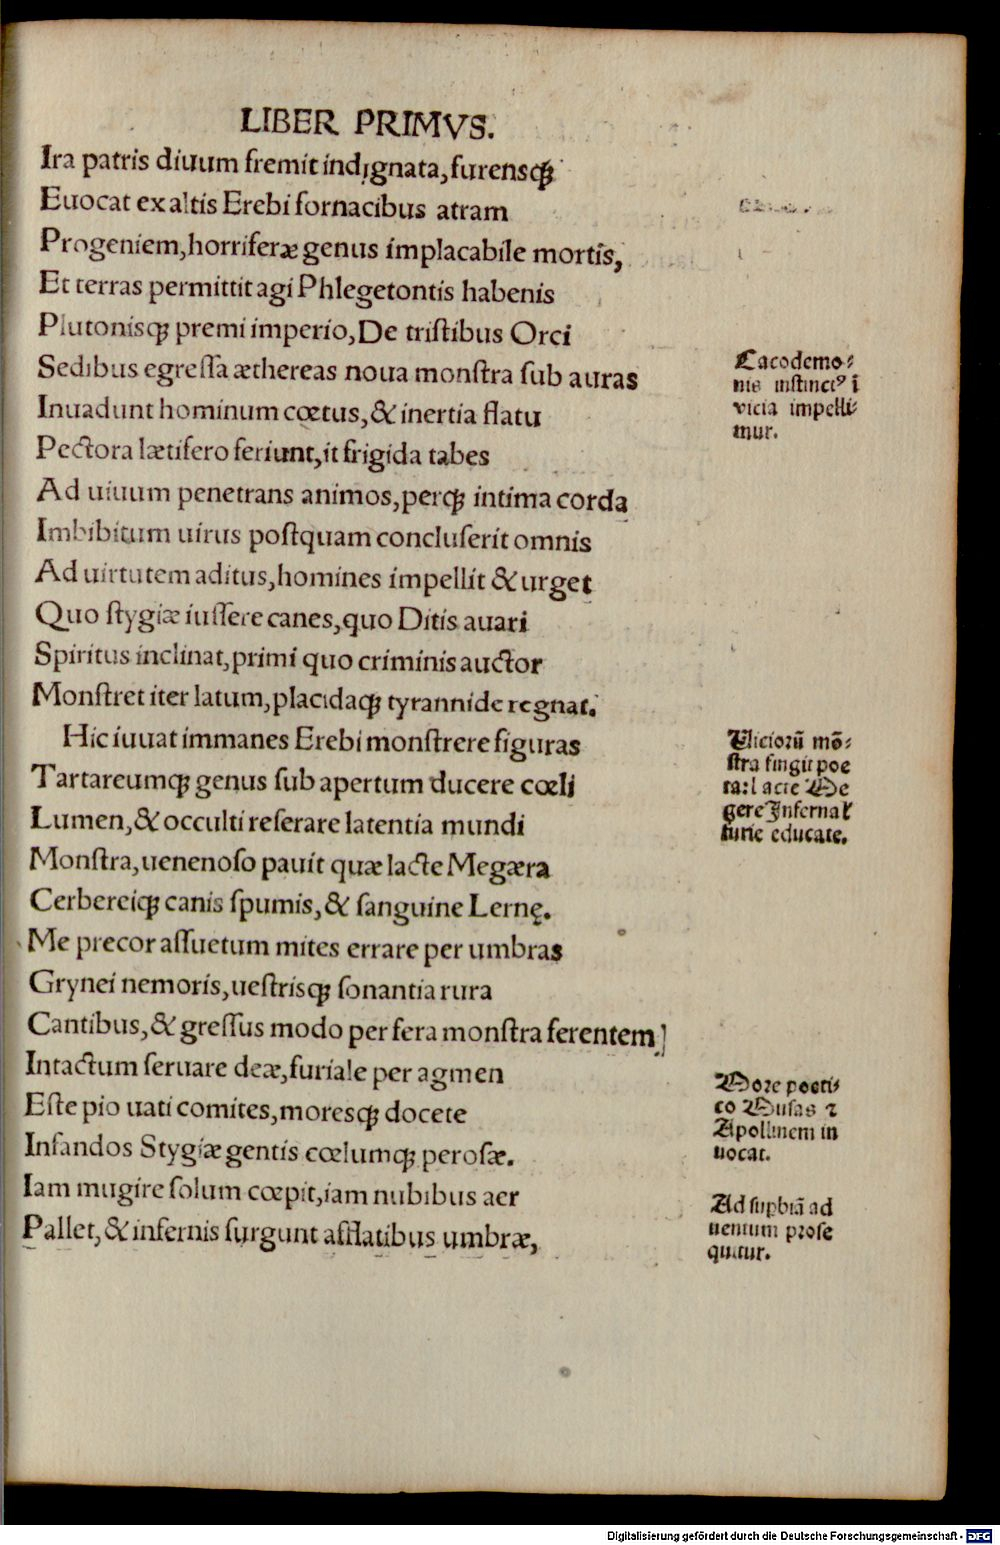 LIBER PRIMVS.
Ira patris diuum fremit indignata, furensqꝫ
Euocat ex altis Erebi fornacibus atram
Progeniem, horriferæ genus implacabile mortis,
Et terras permittit agi Phlegetontis habenis
Plutonisqꝫ premi imperio, De tristibus Orci
Sedibus egressa æthereas noua monstra sub auras
Inuadunt hominum cœtus, & inertia flatu
Pectora lætifero feriunt, it frigida tabes
Ad uiuum penetrans animos, perqꝫ intima corda
Imbibitum uirus postquam concluserit omnis
Ad uirtutem aditus, homines impellit & urget
Quo stygiæ iussere canes, quo Ditis auari
Spiritus inclinat, primi quo criminis auctor
Monstret iter latum, placidaqꝫ tyrannide regnat.
Hic iuuat immanes Erebi monstrere figuras
Tartareumqꝫ genus sub apertum ducere cœli
Lumen, & occulti reserare latentia mundi
Monstra, uenenoso pauit quæ lacte Megæra
Cerbereiqꝫ canis spumis, & sanguine Lernę.
Me precor assuetum mites errare per umbras
Grynei nemoris, uestrisqꝫ sonantia rura
Cantibus, & gressus modo per fera monstra ferentem
Intactum seruare deæ, furiale per agmen
Este pio uati comites, moresqꝫ docete
Infandos Stygiæ gentis cœlumqꝫ perosæ.
Iam mugire solum cœpit, iam nubibus aer
Pallet, & infernis surgunt afflatibus umbræ,
Cacodemo⸗
nis instinctꝰ ī
vicia impelli⸗
mur.
Viciorū mō⸗
stra fingit poe
ta: lacte Me
gere Infernal
furie educate.
More poeti⸗
co Musas ⁊
Apollinem in
uocat.
Ad supbiā ad
uentum prose
quitur.
Digitalisierung gefördert durch die Deutsche Forschungsgemeinschaft - DFG